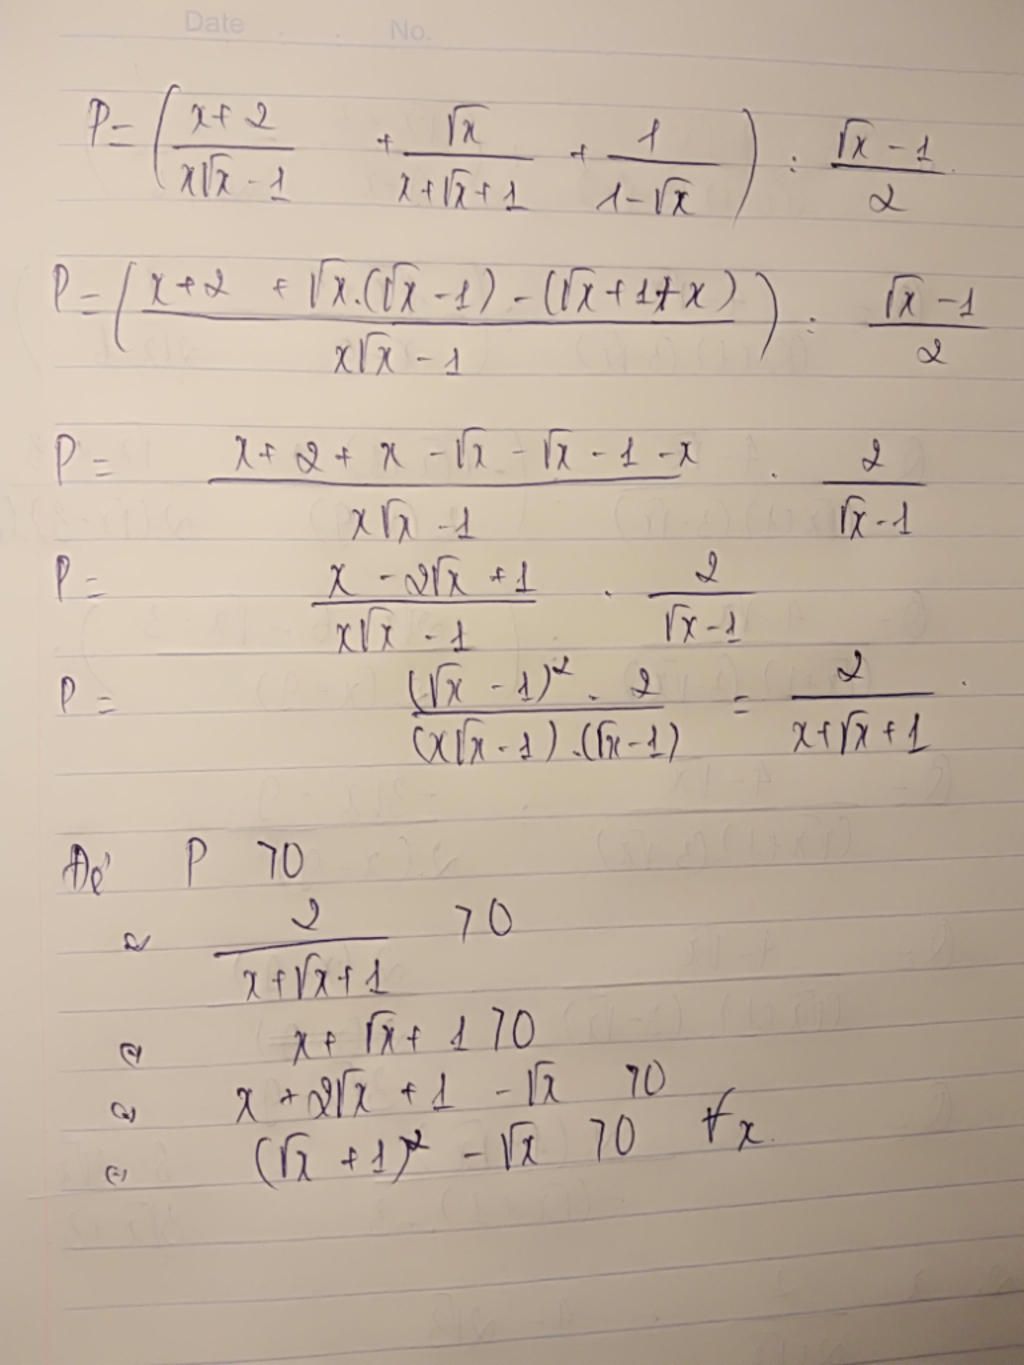 Date . . No.
P = ( (x+2)/(x√x - 1) + √x/(x+√x+1) + 1/(1-√x) ) : (√x - 1)/2
P = ( (x+2 + √x.(√x - 1) - (√x+1+x))/(x√x - 1) ) : (√x - 1)/2
P = (x+2+x-√x-√x-1-x)/(x√x - 1) . 2/(√x-1)
P = (x - 2√x + 1)/(x√x - 1) . 2/(√x-1)
P = ((√x - 1)² . 2)/((x√x - 1).(√x-1)) = 2/(x+√x+1) .
Để P >0
⇔ 2/(x+√x+1) >0
⇔ x+√x+1 >0
⇔ x+2√x+1 - √x >0
⇔ (√x+1)² - √x >0 ∀x.